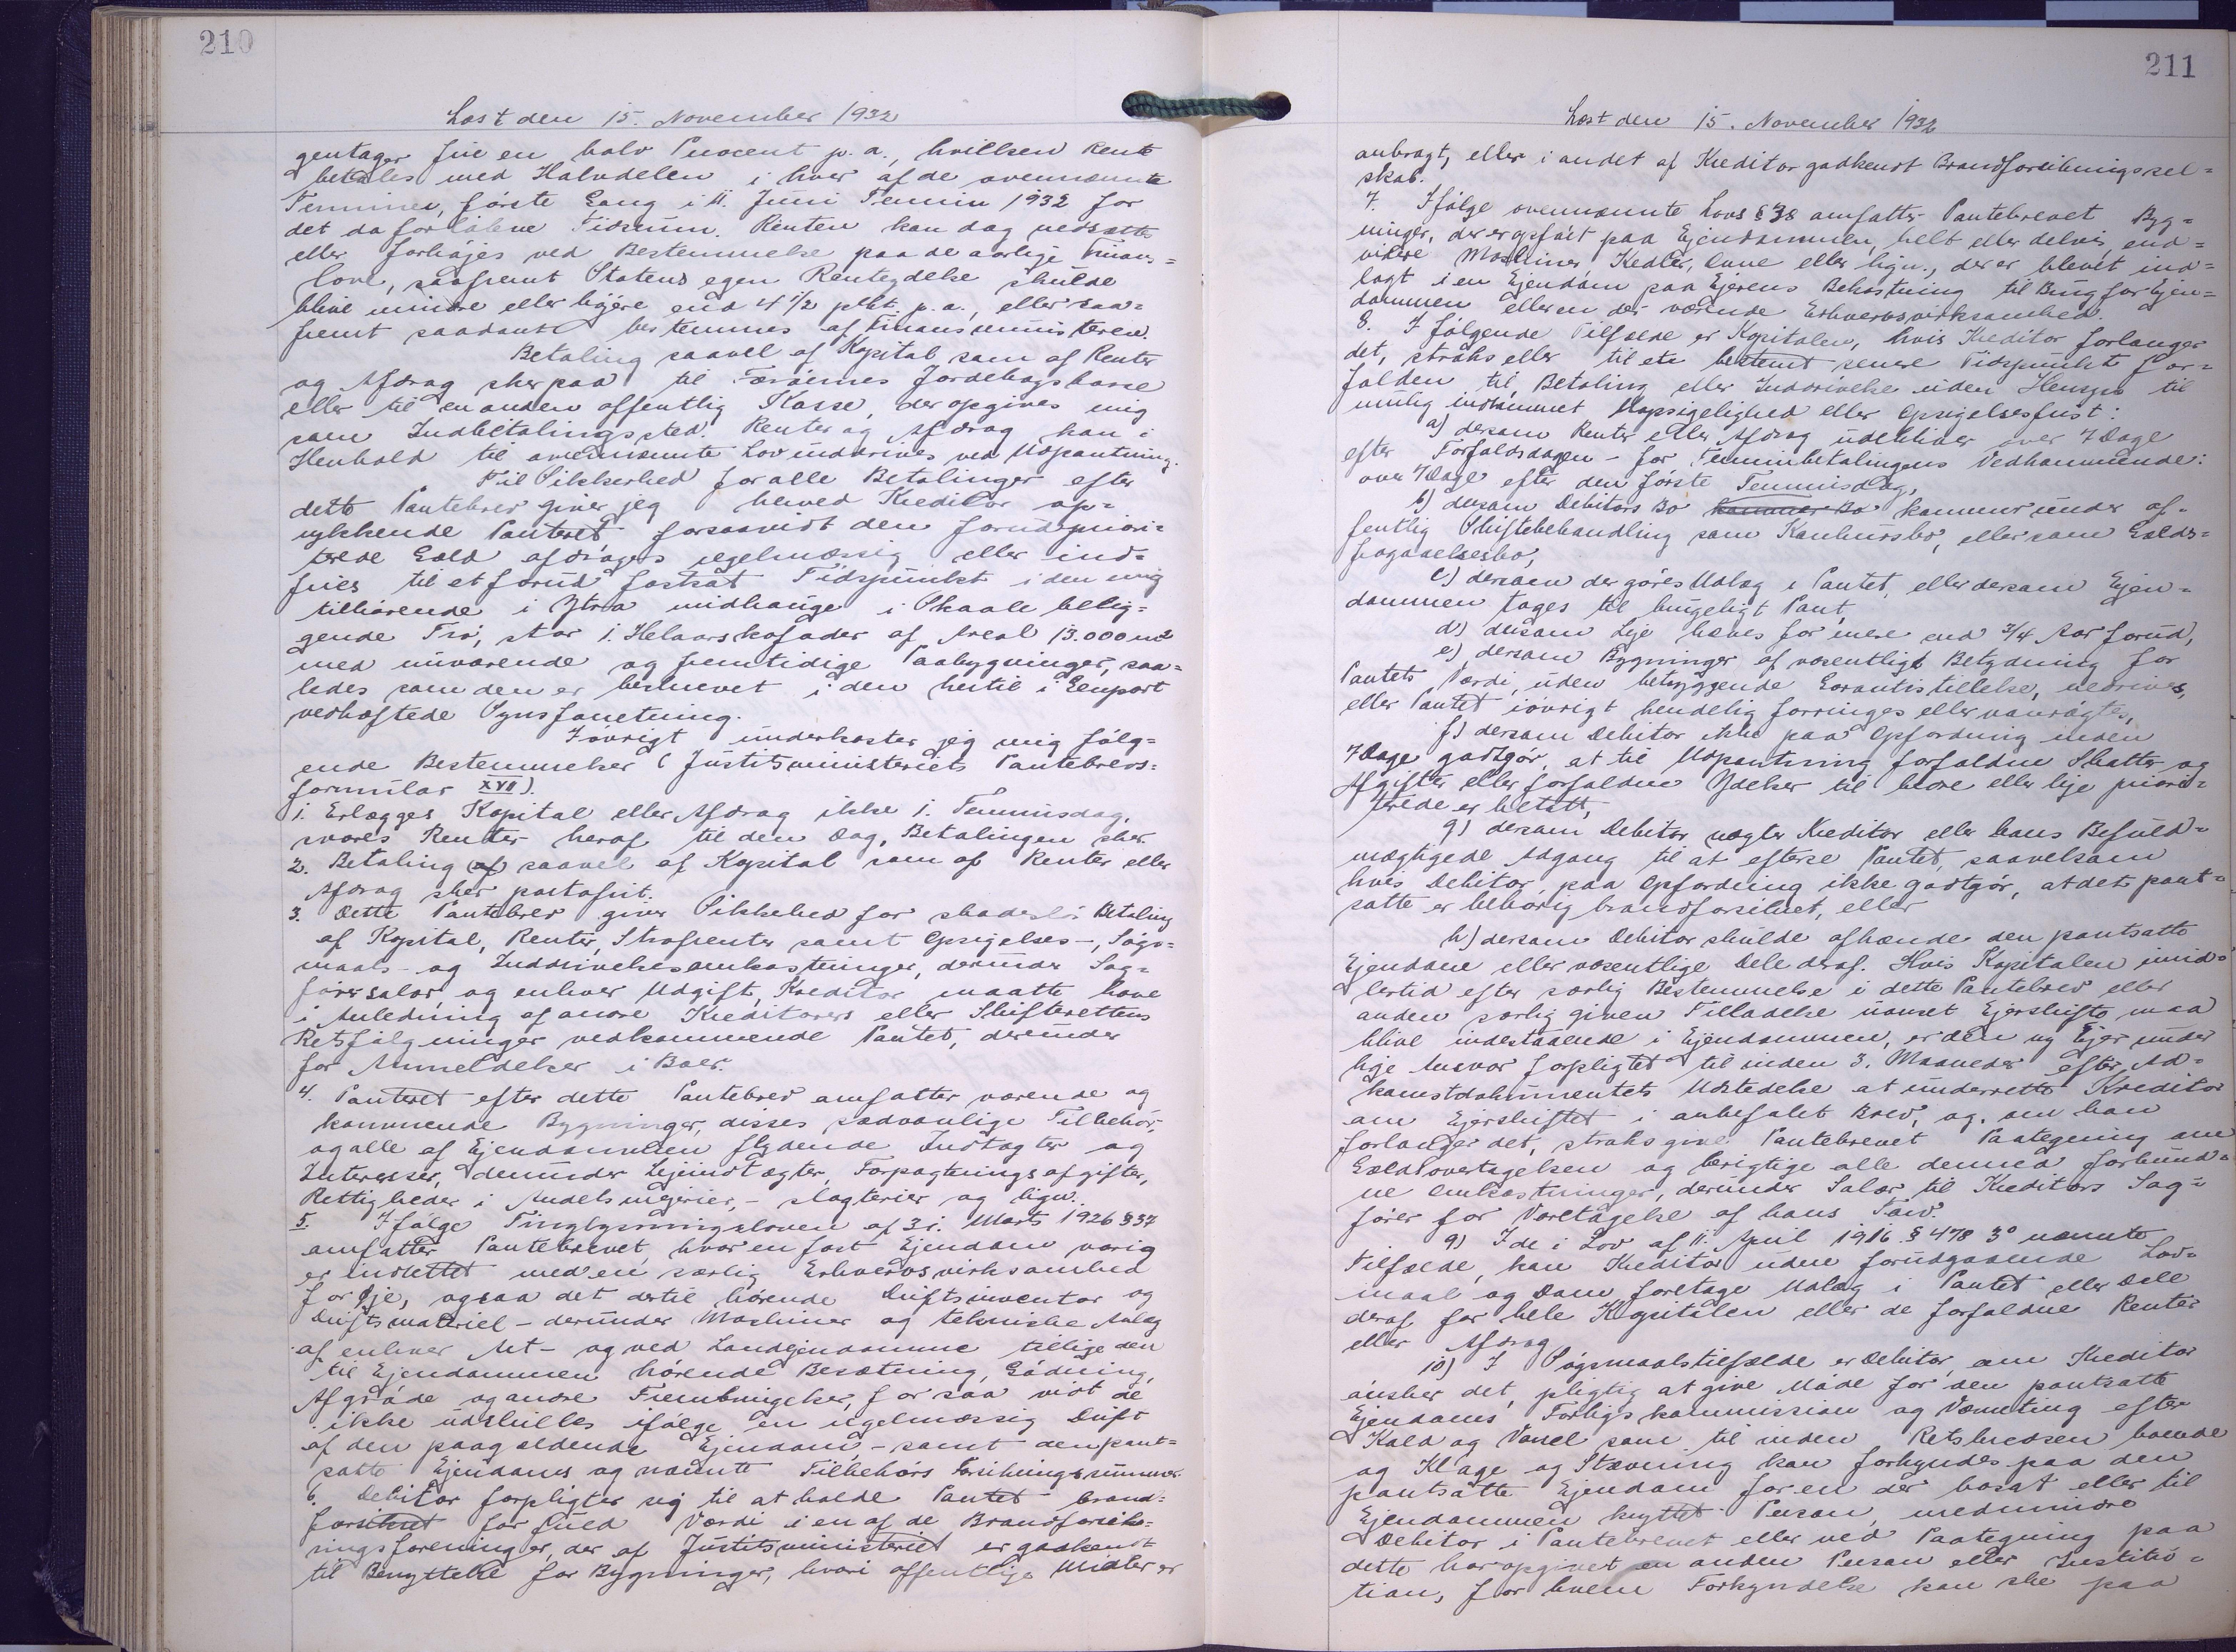 210
Læst den 15. November 1932
gentager fire en halv Procent p.a., hvilken Rente
betales med Halvdelen i hver af de ovennævnte
Terminer, første Gang i 11. Juni Termin 1932 for
det da forløbne Tidsrum. Renten kan dog nedsætte
eller forhøjes ved Bestemmelse paa de aarlige Finans=
love, saafremt Statens egen Renteydelse skulde
blive mindre eller højere end 4 1/2 pCt p.a., eller saa=
fremt saadant bestemmes af Finansministeren.
Betaling saavel af Kapital som af Renter
og Afdrag sker paa til Færøernes Jordebogskasse
eller til en anden offentlig Kasse, der opgives mig
som Indbetalingssted. Renter og Afdrag kan i
Henhold til ovennævnte Lov inddrives ved Udpantning.
Til Sikkerhed for alle Betalinger efter
dette Pantebrev giver jeg herved Kreditor op=
rykkende Panteret, forsaavidt den forudpriori=
terede Gæld afdrages regelmæssig eller ind=
fries til et forud fastsat Tidspunkt i den mig
tilhørende i Ytra midhauge i Skaale belig=
gende Trø, stor i Helaarskofoder af Areal 13.000 m2
med nuværende og fremtidige Paabygninger, saa=
ledes som den er beskrevet i den hertil i Genpart
vedhæftede Synsforretning.
Iøvrigt underkaster jeg mig følg=
ende Bestemmelser (Justitsministeriets Pantebrevs=
formular XVII).
1. Erlægges Kapital eller Afdrag ikke i Terminsdag,
svares Renter heraf til den Dag, Betalingen sker.
2. Betaling af saavel af Kapital som af Renter eller
Afdrag sker portofrit.
3. Dette Pantebrev giver Sikkehed for skadesløs Betaling
af Kapital, Renter, Strafrenter samt Opsigelses-, Søgs=
maals- og Inddrivelsesomkostninger, derunder Sag=
førersalær, og enhver Udgift, Kreditor maatte have
i Anledning af andre Kreditorers eller Skifterettens
Retsfølgninger vedkommende Pantet, derunder
for Anmeldelser i Boer.
4. Panteret efter dette Pantebrev omfatter værende og
kommende Bygninger, disses sædvanlige Tilbehør,
og alle af Ejendommen flydende Indtægter og
Interesser, derunder Lejeindtægter, Forpagtningsafgifter,
Rettigheder i Andelsmejerier, - slagterier og lign.
5. Ifølge Tinglysningsloven af 31. Marts 1926 § 37
omfatter Pantebrevet, hvor en fast Ejendom varig
er indrettet med en særlig Erhvervsvirksomhed
for Øje, ogsaa det dertil hørende Driftsinventar og
Driftsmateriel - derunder Maskiner og tekniske Anlæg
af enhver Art - og ved Landejendomme tillige den
til Ejendommen hørende Besætning, Gødning,
Afgrøde og andre Frembringelser, for saa vidt de
ikke udskilles ifølge en regelmæssig Drift
af den paagældende Ejendom, - samt den pant=
satte Ejendoms og nævnte Tilbehørs Forsikringssummer.
6. Debitor forpligter sig til at holde Pantet brand=
forsikret for fuld Værdi i en af de Brandforsik=
ringsforeninger, der af Justitsministeriet er godkendt
til Benyttelse for Bygninger, hvori offentlige Midler er
211
Læst den 15. November 1932
anbragt, eller i andet af Kreditor godkendt Brandforsikringssel=
skab.
7. Ifølge ovennævnte Lovs § 38 omfatter Pantebrevet Byg=
ninger, der er opført paa Ejendommen, helt eller delvis, end=
videre Maskiner, Kedler, Ovne eller lign., der er blevet ind=
lagt i en Ejendom paa Ejerens Bekostning til Brug for Ejen=
dommen eller en der værende Erhvervsvirksomhed.
8. I følgende Tilfælde er Kapitalen, hvis Kreditor forlanger
det, straks eller til ete bestemt senere Tidspunkt for=
falden til Betaling eller Inddrivelse uden Hensyn til
mulig indrømmet Uopsigelighed eller Opsigelsesfrist:
a) dersom Renter eller Afdrag udebliver over 7 Dage
efter Forfaldsdagen - for Terminbetalingens Vedkommende:
over 7 Dage efter den første Terminsdag,
b) dersom Debitors Bo kommer Bo kommer under of=
fentlig Skiftebehandling som Konkursbo, eller som Gælds=
fragaaelsesbo,
c) dersom der gøres Udlæg i Pantet, eller dersom Ejen=
dommen tages til brugeligt Pant,
d) dersom Leje hæves for mere end 3/4 Aar forud,
e) dersom Bygninger af væsentligt Betydning for
Pantets Værdi, uden betryggende Garantistillelse, nedrives,
eller Pantet iøvrigt kendelig forringes eller vanrøgtes,
f) dersom Debitor ikke paa Opfordring inden
7 Dage godtgør, at til Udpantning forfaldne Skatter og
Afgifter eller forfaldne Ydelser til bedre eller lige priori=
terede er betalt,
g) dersom Debitor nægter Kreditor eller hans Befuld=
mægtigede Adgang til at efterse Pantet, saavelsom
hvis Debitor paa Opfordring ikke godtgør, at det pant=
satte er behørig brandforsikret, eller
h) dersom Debitor skulde afhænde den pantsatte
Ejendom eller væsentlige Dele deraf. Hvis Kapitalen imid=
lertid efter særlig Bestemmelse i dette Pantebrev eller
anden særlig given Tilladelse uanset Ejerskifte maa
blive indestaaende i Ejendommen, er den ny Ejer under
lige Ansvar forpligtet til inden 3 Maaneder efter Ad=
komstdokumentets Udstedelse at underrette Kreditor
om Ejerskiftet i anbefalet Brev, og, om han
forlanger det, straks give Pantebrevet Paategning om
Gældsovertagelsen og berigtige alle dermed forbund=
ne Omkostninger, derunder Salær til Kreditors Sag=
fører for Varetagelse af hans Tarv.
9) I de i Lov af 11. April 1916 § 478 3° nævnte
Tilfælde, kan Kreditor uden forudgaaende Lov=
maal og Dom foretage Udlæg i Pantet eller Dele
deraf for hele Kapitalen eller de forfaldne Renter
eller Afdrag
10) I Søgsmaalstilfælde er Debitor, om Kreditor
ønsker det, pligtig at give Møde for den pantsatte
Ejendoms Forligskommission og Værneting efter
Kald og Varsel som til inden Retskredsen boende
og Klage og Stævning kan forkyndes paa den
pantsatte Ejendom for en der bosat eller til
Ejendommen knyttet Person, medmindre
Debitor i Pantebrevet eller ved Paategning paa
dette har opgivet en anden Person eller Institu=
tion, for hvem Forkyndelse kan ske paa